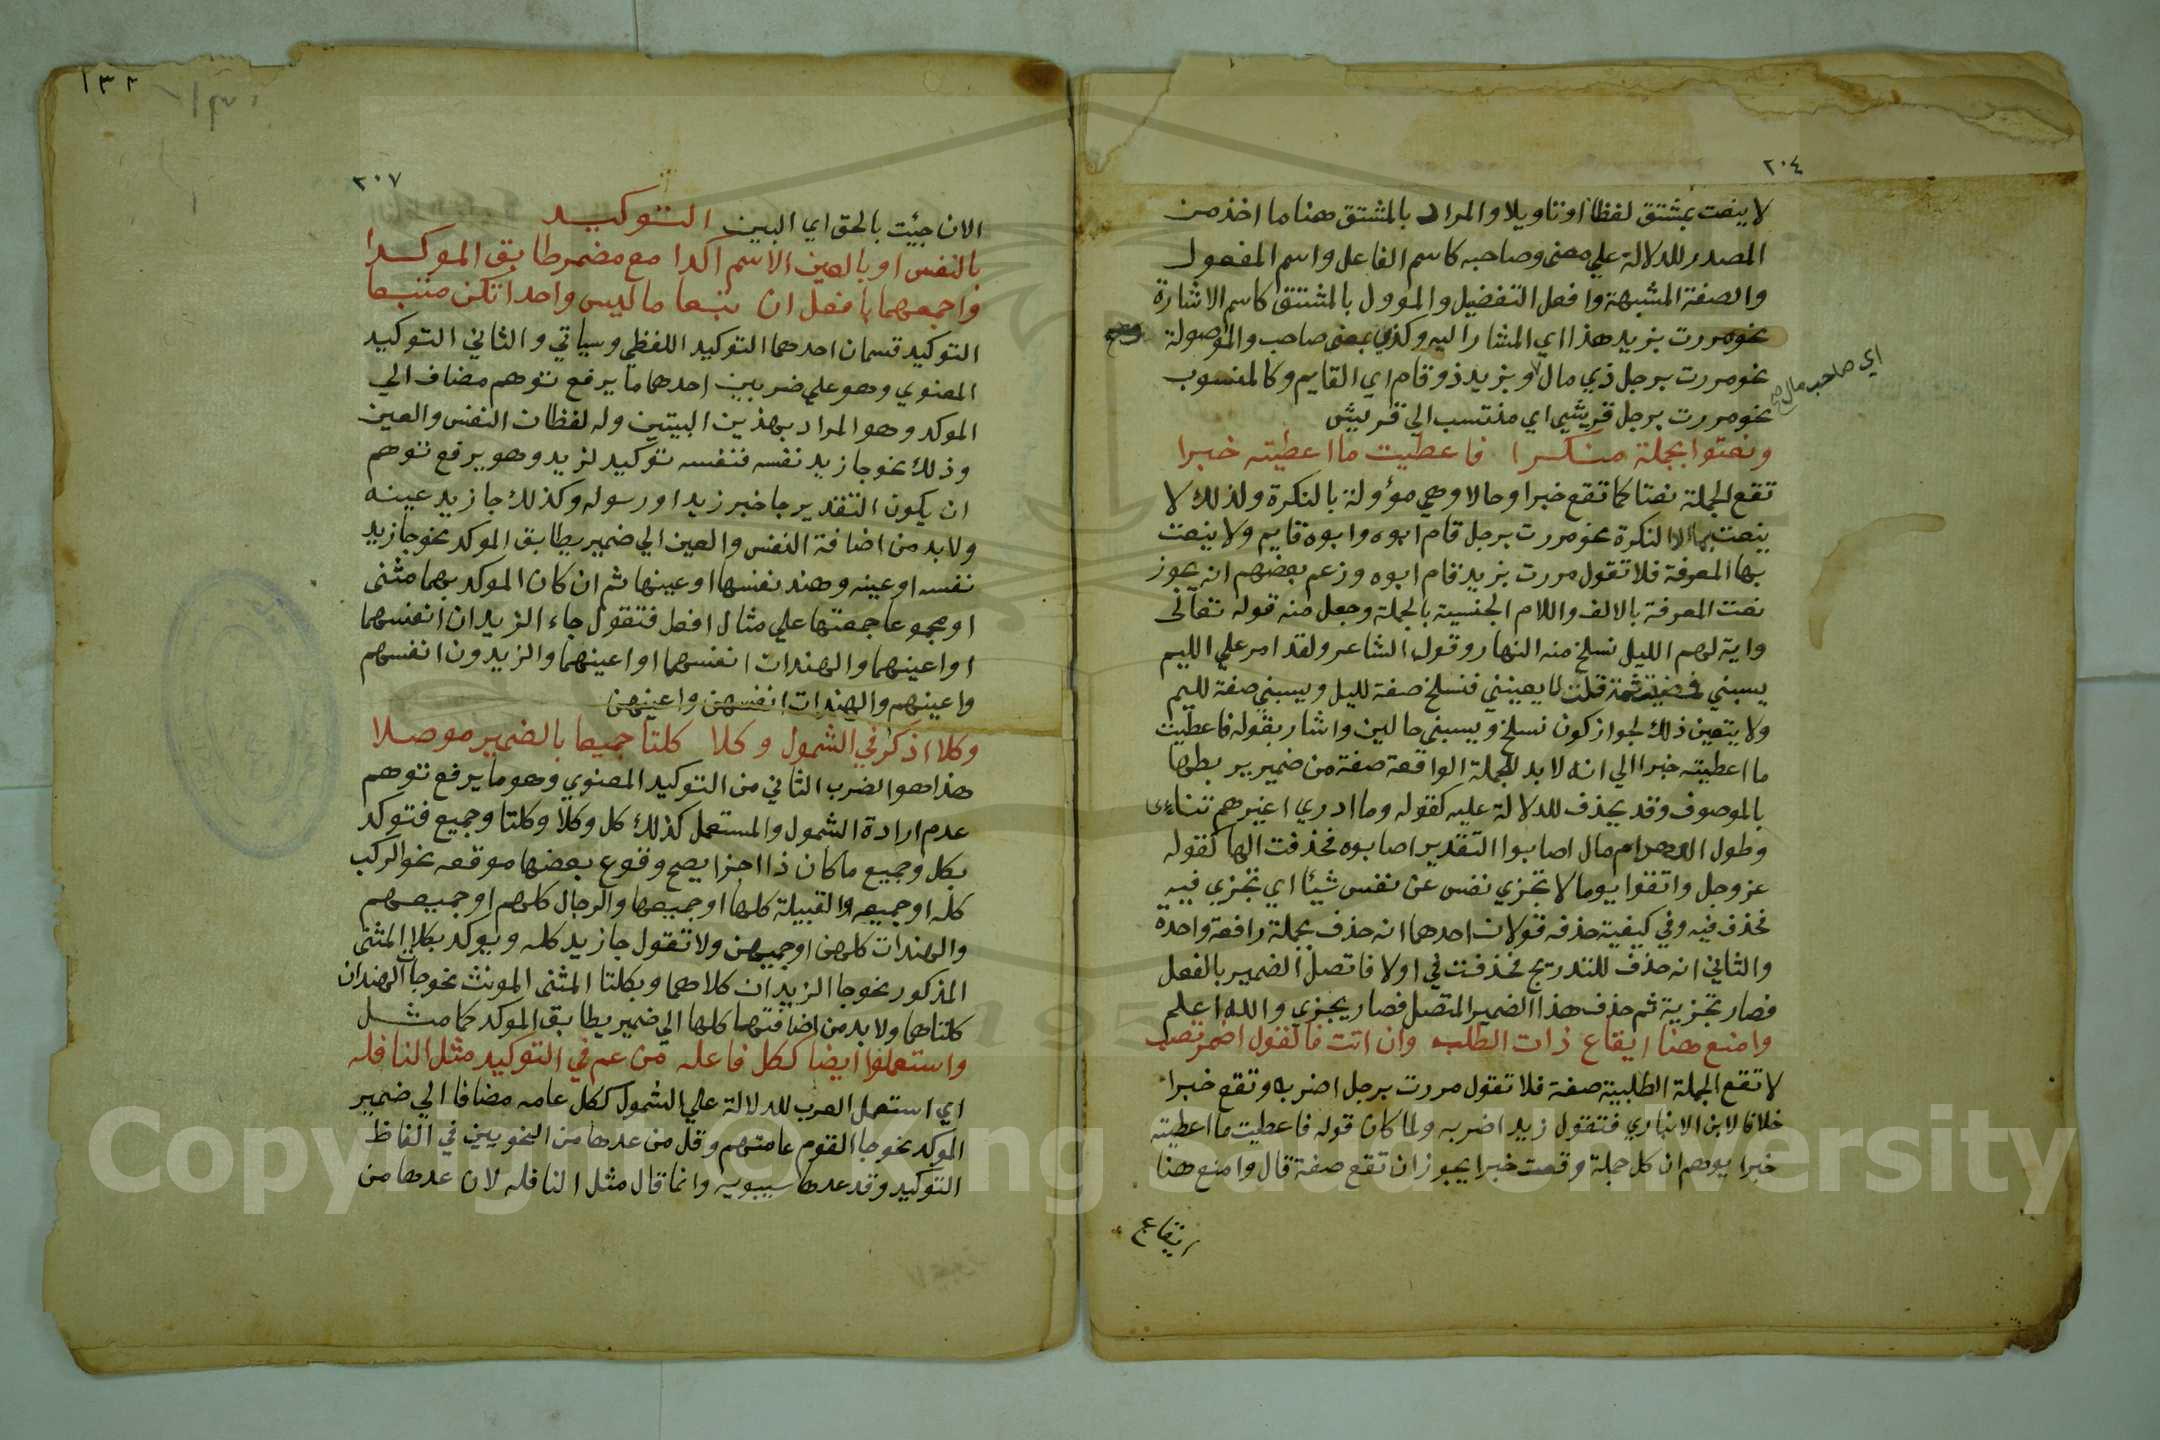 ٢٠٤
لا ينعت بمشتق لفظا او تاويلا والمراد بالمشتق هنا ما اخذ من
المصدر للدلالة علي معنى وصاحبه كاسم الفاعل واسم المفعول
والصفة المشبهة وافعل التفضيل والموول بالمشتق كاسم الاشارة
نحو مررت بزيد هذا اي المشار اليه وكذي بمعنى صاحب والموصولة
نحو مررت برجل ذي مال وبزيد ذو قام اي القايم وكالمنسوب
اي صاحب مال صح
نحو مررت برجل قريشي اي منتسب الي قريش
ونعتوا بجملة منكرا فاعطيت ما اعطيته خبرا
تقع الجملة نعتا كما تقع خبرا وحالا وهي مؤولة بالنكرة ولذلك لا
ينعت بها الا النكرة نحو مررت برجل قام ابوه وابوه قايم ولا ينعت
بها المعرفة فلا تقول مررت بزيد قام ابوه وزعم بعضهم انه يجوز
نعت المعرفة بالالف واللام الجنسية بالجملة وجعل منه قوله تعالى
واية لهم الليل نسلخ منه النهار وقول الشاعر ولقد امر علي الليم
يسبني فمضيت ثمة قلت لا يعنيني فنسلخ صفة لليل ويسبني صفة لليم
ولا يتعين ذلك لجواز كون نسلخ ويسبني حالين واشار بقوله فاعطيت
ما اعطيته خبرا الي انه لا بد للجملة الواقعة صفة من ضمير يربطها
بالموصوف وقد يحذف للدلالة عليه كقوله وما ادري اغيرهم تناءى
وطول الدهر ام مال اصابوا التقدير اصابوه فحذفت الها كقوله
عز وجل واتقوا يوما لا تجزي نفس عن نفس شيئا اي تجزي فيه
فحذف فيه وفي كيفية حذفه قولان احدهما انه حذف بجملة رافعة واحدة
والثاني انه حذف للتدريج فحذفت في اولا فاتصل الضمير بالفعل
فصار تجزيه ثم حذف هذا الضمير المتصل فصار يجزي والله اعلم
وامنع هنا ايقاع ذات الطلب وان اتت فالقول اضمر تصب
لا تقع الجملة الطلبية صفة فلا تقول مررت برجل اضربه وتقع خبرا
خلافا لابن الانباري فتقول زيد اضربه ولما كان قوله فاعطيت ما اعطيته
خبرا يوهم ان كل جملة وقعت خبرا يجوز ان تقع صفة قال وامنع هنا
ايقاع
١٣٢
٢٠٧
الان جئت بالحق اي البين التوكيد
بالنفس او بالعين الاسم اكدا مع مضمر طابق الموكدا
واجمعهما بافعل ان تبعا ما ليس واحدا تكن متبعا
التوكيد قسمان احدهما التوكيد اللفظي وسياتي والثاني التوكيد
المعنوي وهو علي ضربين احدهما ما يرفع توهم مضاف الي
الموكد وهو المراد بهذين البيتين وله لفظان النفس والعين
وذلك نحو جا زيد نفسه فنفسه توكيد لزيد وهو يرفع توهم
ان يكون التقدير جا خبر زيد او رسوله وكذلك جا زيد عينه
ولا بد من اضافة النفس والعين الي ضمير يطابق الموكد نحو جا زيد
نفسه او عينه وهند نفسها او عينها ثم ان كان الموكد بهما مثنى
او مجموعا جمعتها علي مثال افعل فتقول جاء الزيدان انفسهما
او اعينهما والهندات انفسهما او اعينهما والزيدون انفسهم
واعينهم والهندات انفسهن واعينهن
وكلا اذكر في الشمول وكلا كلتا جميعا بالضمير موصلا
هذا هو الضرب الثاني من التوكيد المعنوي وهو ما يرفع توهم
عدم ارادة الشمول والمستعمل كذلك كل وكلا وكلتا وجميع فتوكد
بكل وجميع ما كان ذا اجزا يصح وقوع بعضها موقعه نحو الركب
كله او جميعه والقبيلة كلها او جميعها والرجال كلهم او جميعهم
والهندات كلهن او جميعهن ولا تقول جا زيد كله ويوكد بكلا المثنى
المذكور نحو جا الزيدان كلاهما وبكلتا المثنى المونث نحو جا الهندان
كلتاهما ولا بد من اضافتها كلها الي ضمير يطابق الموكد كما مثل
واستعملوا ايضا ككل فاعله من عم في التوكيد مثل النافله
اي استعمل العرب للدلالة علي الشمول ككل عامه مضافا الي ضمير
الموكد نحو جا القوم عامتهم وقل من عدها من النحويين في الفاظ
التوكيد وقد عدها سيبويه وانما قال مثل النافله لان عدها من
Copyright © King Saud University